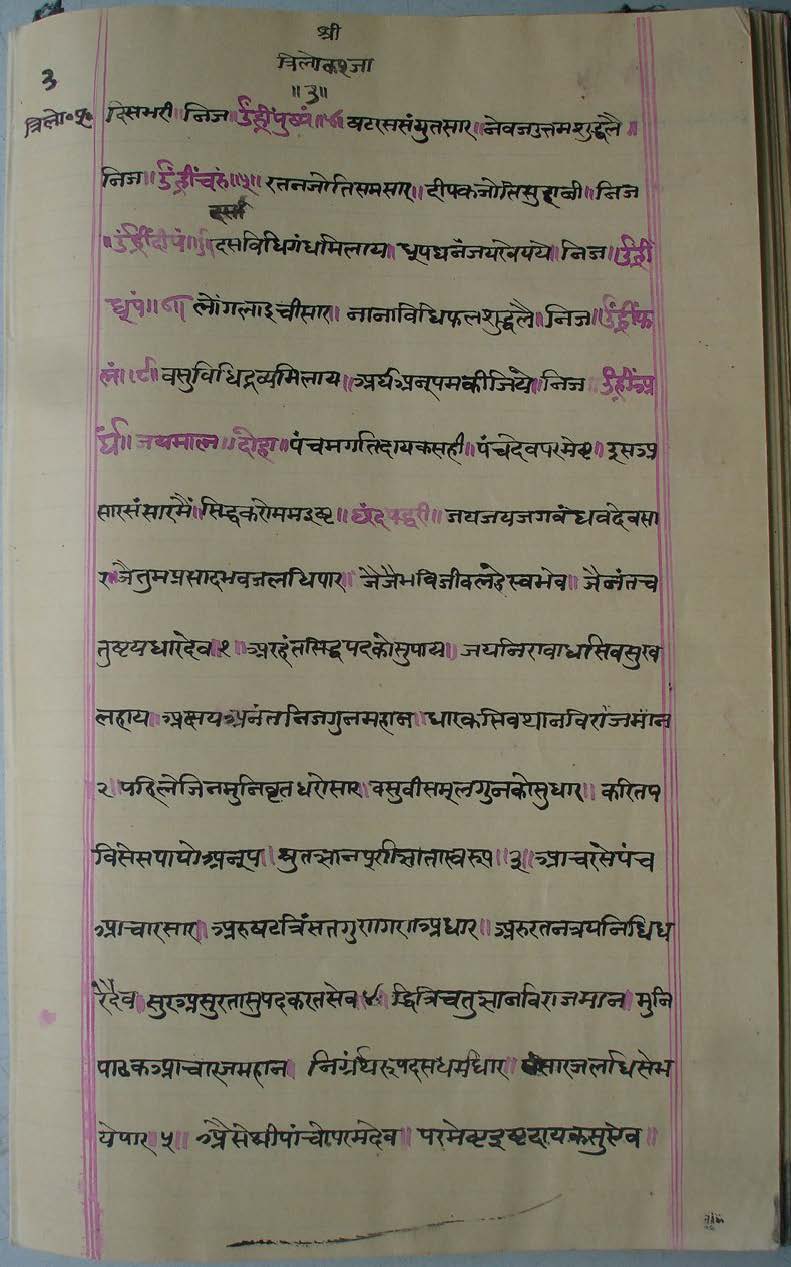 श्री
त्रिलोकप्रजा
॥३॥
३
त्रिलो॰पू॰
दिसभरी॥ निज॥ उंह्रीं पुष्पं॥४॥ षटरससंयुतसार॥ नेवजउत्तमशुद्धलै॥
निज॥ उंह्रीं चरुं॥५॥ रतनजोतिसमसार॥ दीपकजोतिसुहावी॥ निज
॥उंह्रीं दीपं॥६॥ दसविधिगंधमिलाय॥ धूपधनंजयखेयये॥ निज॥ उंह्रीं
धूपं॥७॥ लोंगलाइचीसार॥ नानाविधिफलशुद्धलै॥ निज॥ उंह्रीं फ
लं॥८॥ वसुविधिद्रव्यमिलाय॥ अर्घअनूपमकीजिये॥ निज उंह्रीं अ
र्घं॥ जयमाल॥ दोहा॥ पंचमगतिदायकसही॥ पंचदेवपरमेष्ट॥ इसअ
सारसंसारमैं॥ सिद्धकरोममइष्ट॥ छंदपद्धरी॥ जयजयजगबंधवदेवसा
र॥ जैतुमप्रसादभवजलधिपार॥ जैजैभविजीवलहेस्वमेव॥ जैनंतच
तुष्टयधारदेव॥१॥ अरहंतसिद्धपदकोसुपाय॥ जयनिरावाधसिवसुख
लहाय॥ अक्षयअनंतनिजगुनमहान॥ धारकसिवथानविराजमान
२॥ पहिलेजिनमुनिवृतधरोसार॥ वसुवीसमूलगुनकोसुधार॥ करितप
विसेसपायोअनूप॥ श्रुतज्ञानपूर्णज्ञातास्वरूप॥३॥ आचरसेपंच
आचारसार॥ अरुषटत्रिंसतगुणगणअधार॥ अरुरतनत्रयनिधिध
रैदेव॥ सुरअसुरतासुपदकरतसेव॥४॥ द्वित्रिचतुज्ञानविराजमान॥ मुनि
पाठकआचारजमहान॥ निग्रंथरूपदसधर्मधार॥ संसारजलधिसेभ
येपार॥५॥ अैसेश्रीपांचोपरमदेव॥ परमेष्टइष्टदायकसुएव॥